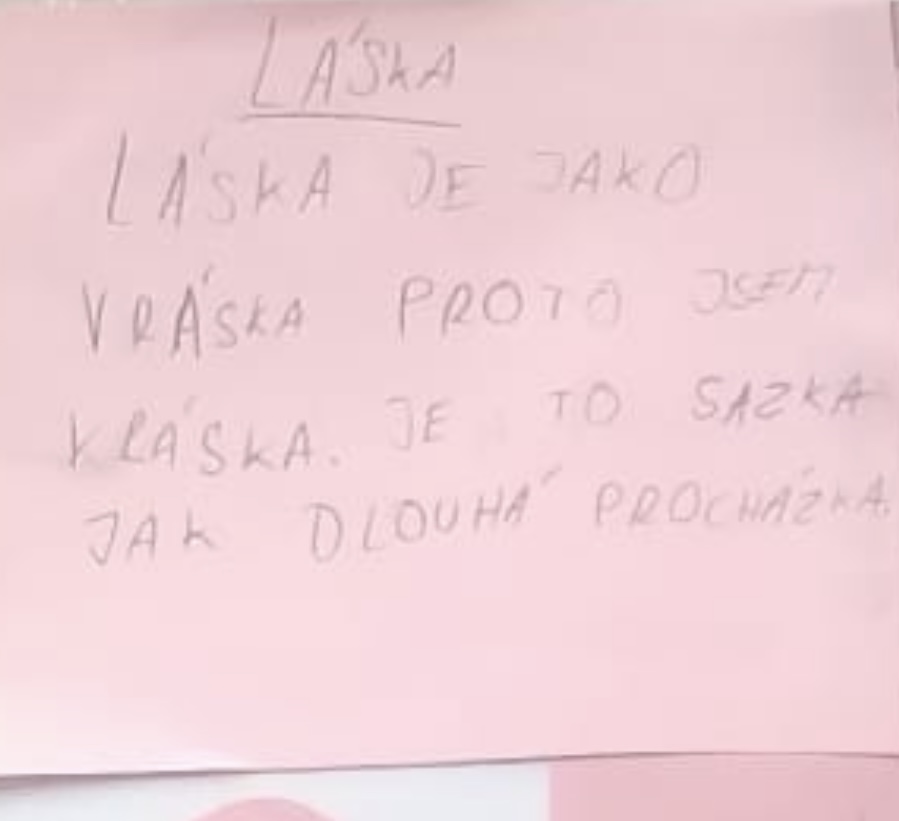 LÁSKA
LÁSKA JE JAKO
VRÁSKA PROTO JSEM
KRÁSKA. JE TO SAZKA
JAK DLOUHÁ PROCHÁZKA.